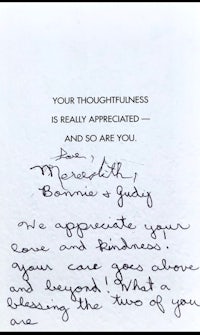 YOUR THOUGHTFULNESS
IS REALLY APPRECIATED —
AND SO ARE YOU.
Love,
Meredith,
Bonnie & Judy
We appreciate your
love and kindness.
Your care goes above
and beyond! What a
blessing the two of you
are